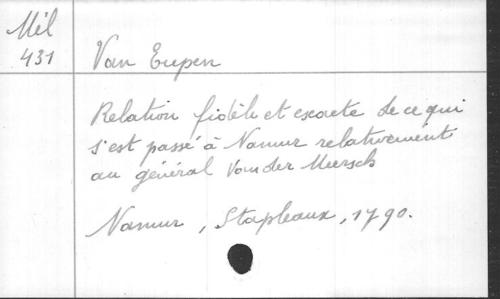 Mél
431
Van Eupen
Relation fidèle et exacte de ce qui
s'est passé à Namur relativement
au général Vander Meersch
Namur, Stapleaux, 1790.